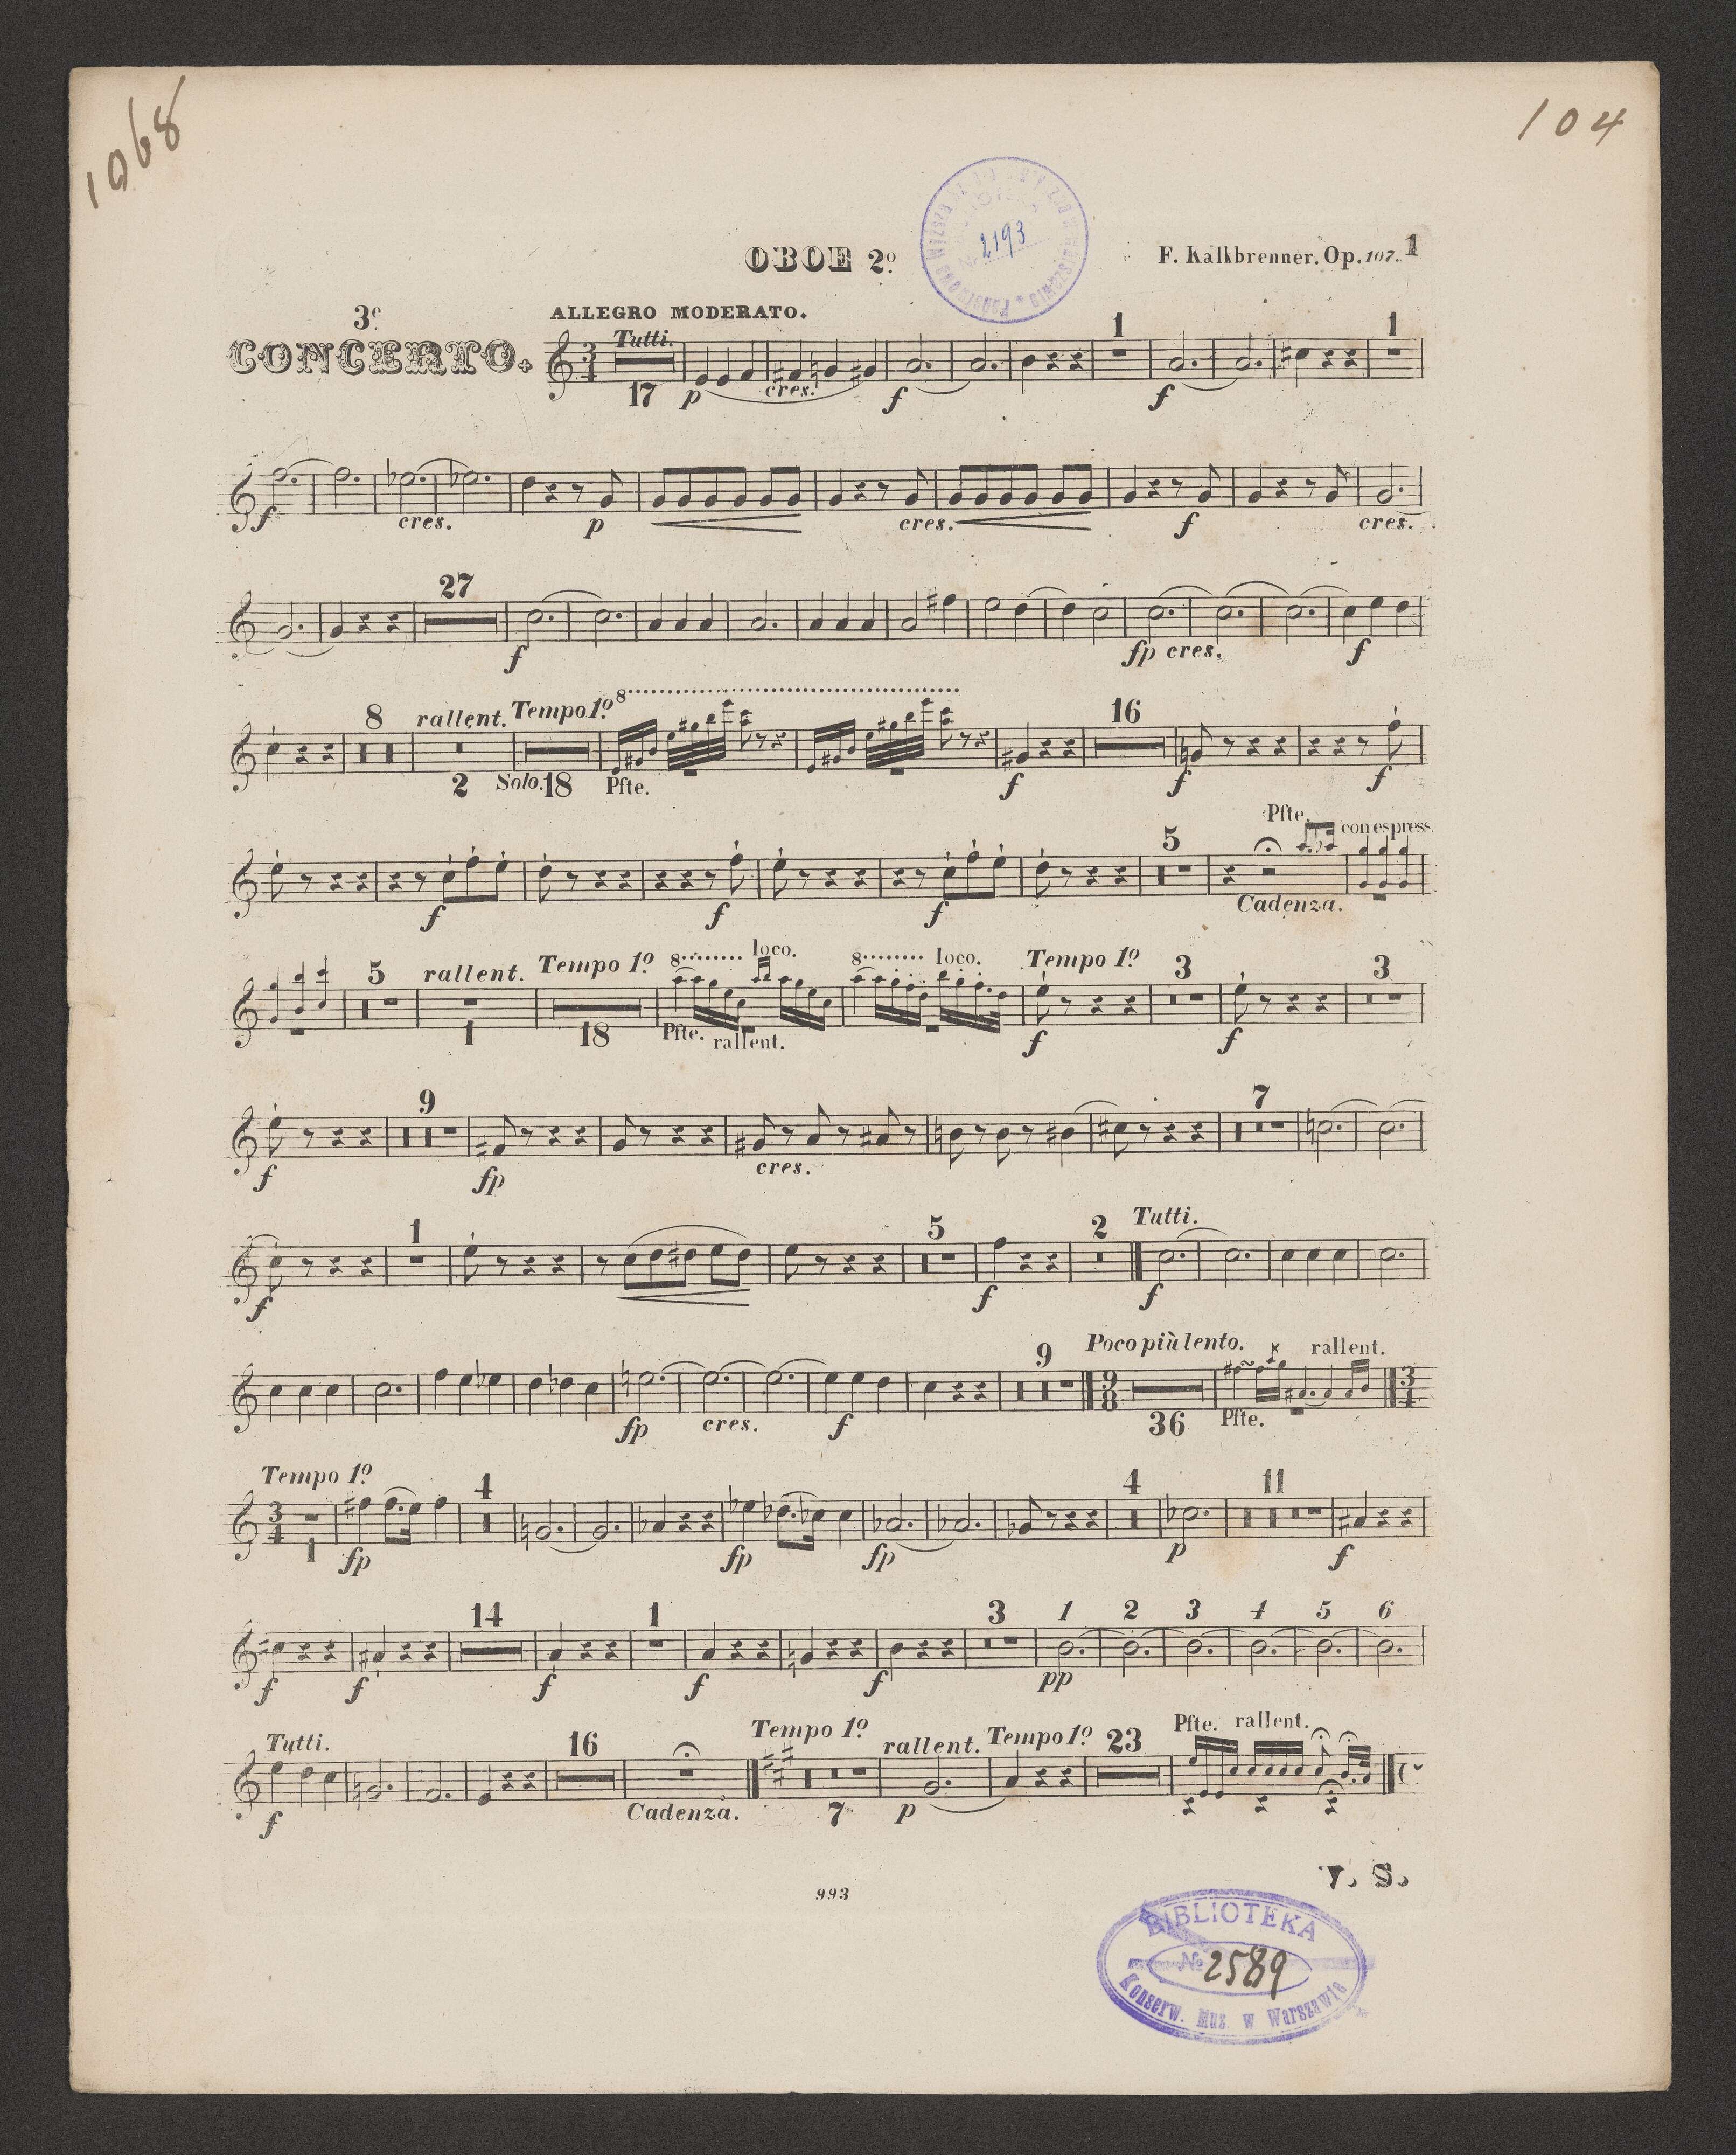 1068
104
2193
OBOE 2º
F. Kalkbrenner. Op. 107. 1
3e
CONCERTO.
ALLEGRO MODERATO.
Tutti. 1 1
17 p cres. f f
f cres. p cres. f cres.
27
f fp cres. f
8 rallent. Tempo 1º 8 16
2 Solo. 18 Pfte. f f f
5 Pfte. con espress.
f f f Cadenza.
5 rallent. Tempo 1º 8 loco. 8 loco. Tempo 1º 3 3
1 18 Pfte. rallent. f f
9 7
f fp cres.
1 5 2 Tutti.
f f f
9 Poco più lento. rallent.
fp cres. f 9/8 36 Pfte. 3/4
Tempo 1º 4 4 11
3/4 1 fp fp fp p f
14 1 3 1 2 3 4 5 6
f f f f f pp
Tutti. 16 Tempo 1º rallent. Tempo 1º 23 Pfte. rallent.
f Cadenza. 7 p
V. S.
993
BIBLIOTEKA
№ 2589
Konserw. Muz. w Warszawie